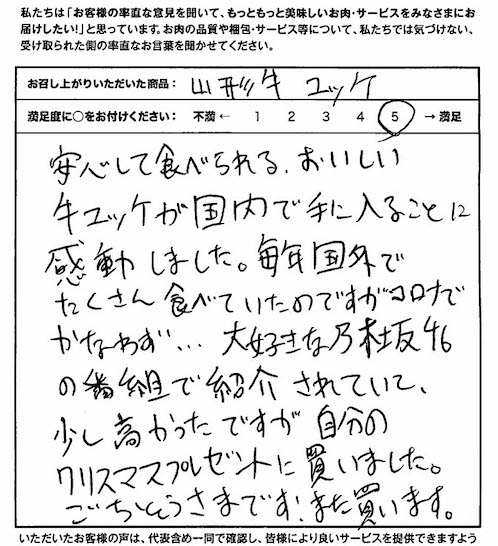 私たちは「お客様の率直な意見を聞いて、もっともっと美味しいお肉・サービスをみなさまにお
届けしたい!」と思っています。お肉の品質や梱包・サービス等について、私たちでは気づけない、
受け取られた側の率直なお言葉を聞かせてください。
お召し上がりいただいた商品: 山形牛 ユッケ
満足度に○をお付けください: 不満 ← 1 2 3 4 5 → 満足
安心して食べられる、おいしい
牛ユッケが国内で手に入ることに
感動しました。毎年国外で
たくさん食べていたのですがコロナで
かなわず… 大好きな乃木坂46
の番組で紹介されていて、
少し高かったですが自分の
クリスマスプレゼントに買いました。
ごちそうさまです!また買います。
いただいたお客様の声は、代表含め一同で確認し、皆様により良いサービスを提供できますよう